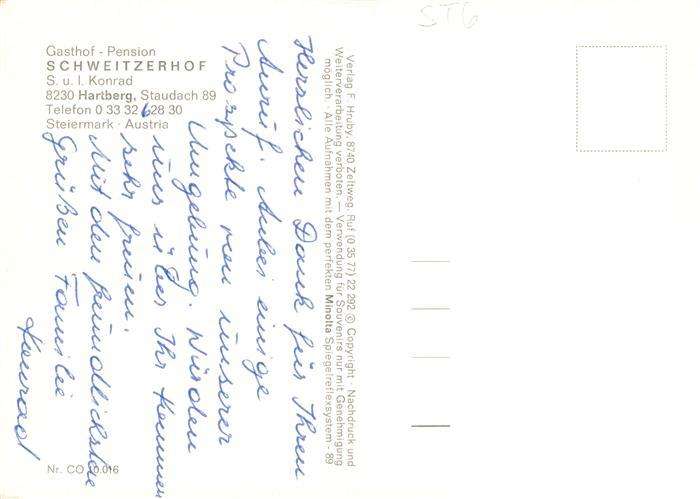 ST6
Gasthof - Pension
SCHWEITZERHOF
S. u. I. Konrad
8230 Hartberg, Staudach 89
Telefon 0 33 32 628 30
Steiermark · Austria
Herzlichen Dank für Ihren
Anruf. Anbei einige
Prospekte von unserer
Umgebung. Würden
uns über Ihr Kommen
sehr freuen.
Mit den freundlichsten
Grüßen Familie
Konrad
Verlag F. Hruby, 8740 Zeltweg, Ruf (0 35 77) 22 292 © Copyright · Nachdruck und
Weiterverarbeitung verboten. — Verwendung für Souvenirs nur mit Genehmigung
möglich. · Alle Aufnahmen mit dem perfekten Minolta Spiegelreflexsystem - 89
Nr. CO 10.016